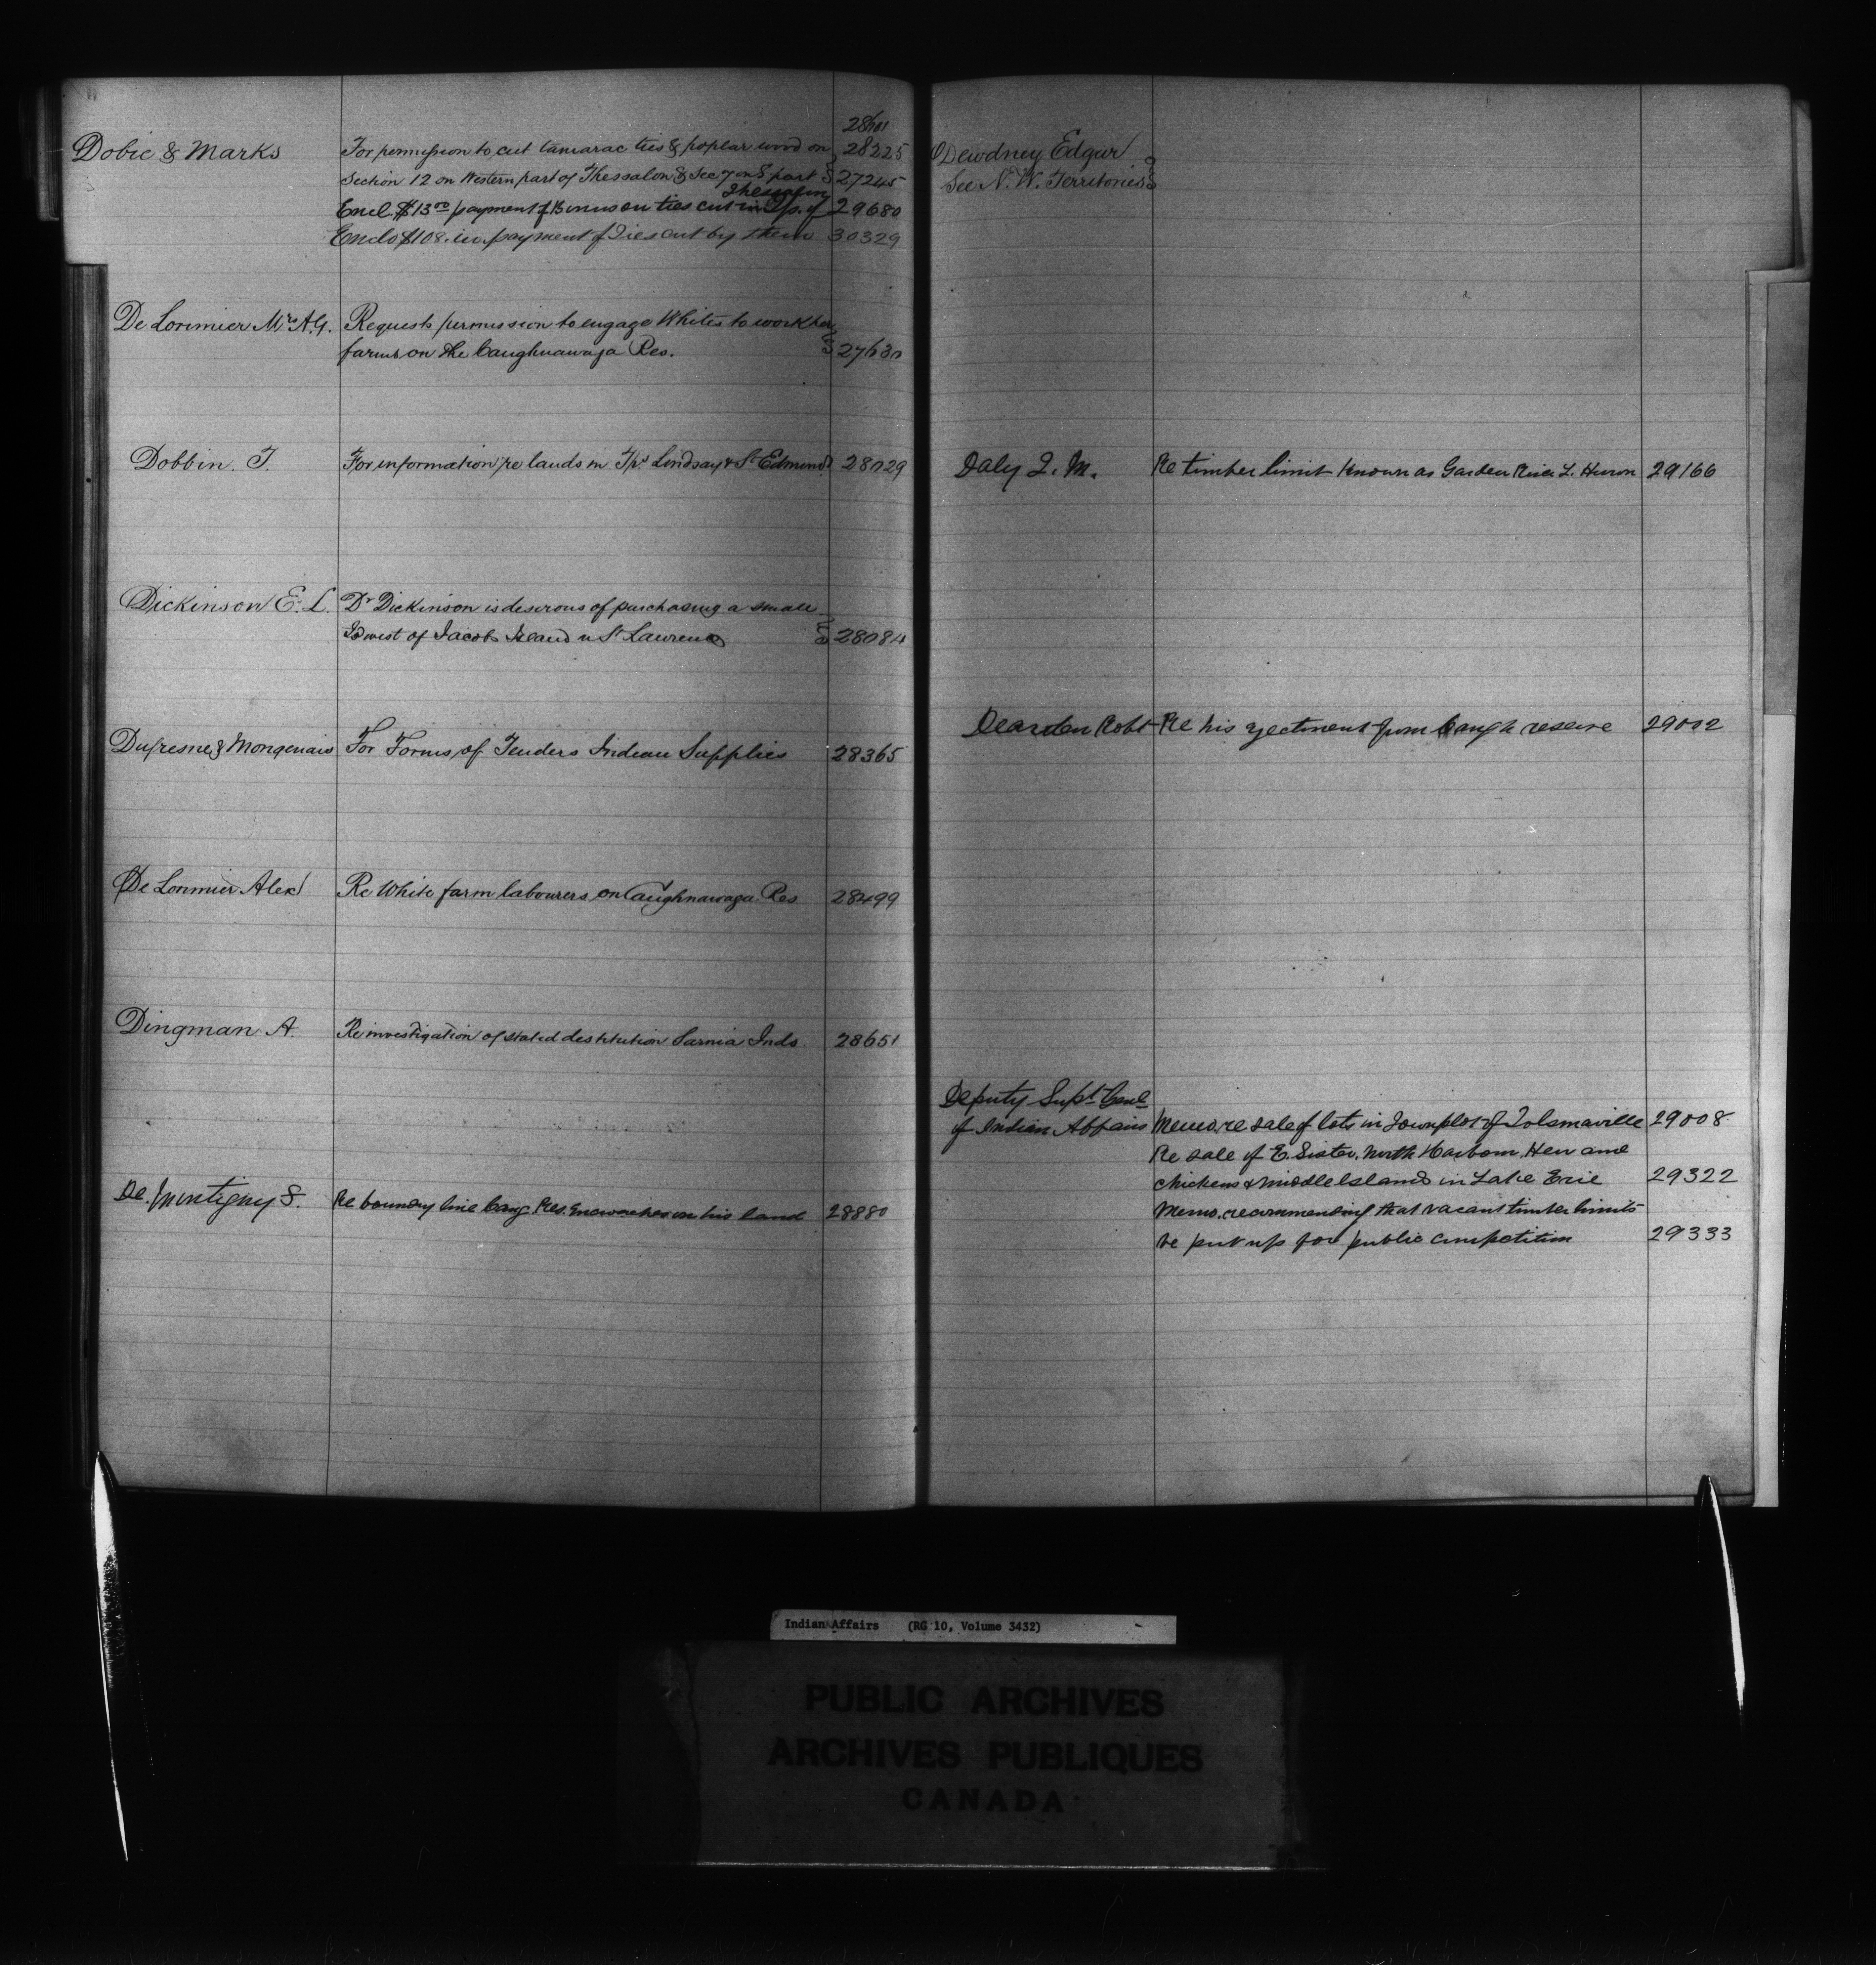 28101
Dobie & Marks For permission to cut tamarac ties & poplar wood on 28225
Section 12 on Western part of Thessalon & Sec 7 on E part 27245
Thessalon
Encl. $13.00 payment of Bonus on ties cut in Tp. of 29680
Enclo $108. in payment of Ties cut by them 30329
De Lorimier Mrs A.G. Requests permission to engage Whites to work her
farms on the Caughnawaga Res. 27630
Dobbin. T. For information re lands in Tps Lindsay & St Edmund 28029
Dickinson E. L. Dr Dickinson is desirous of purchasing a small
Id west of Jacobs Island in St Lawrence 28084
Dufresne & Mongenais For Forms of Tenders Indian Supplies 28365
De Lorimier Alex Re White farm labourers on Caughnawaga Res 28499
Dingman A. Re investigation of stated destitution Sarnia Inds 28651
De. Montigny S. Re boundry line Caug. Res. encroaches on his land 28880
Dewdney Edgar
See N. W. Territories
Daly T. M. Re timber limit known as Garden River L. Huron 29166
Dearden Robt Re his ejectment from Caugh reserve 29002
Deputy Supt Genl
of Indian Affairs Memo. re sale of lots in Townplot of Tolsmaville 29008
Re sale of E. Sister. North Harbour. Hen and
chickens & Middle Islands in Lake Erie 29322
Memo. recommending that vacant timber limits
be put up for public competition 29333
Indian Affairs (RG 10, Volume 3432)
PUBLIC ARCHIVES
ARCHIVES PUBLIQUES
CANADA